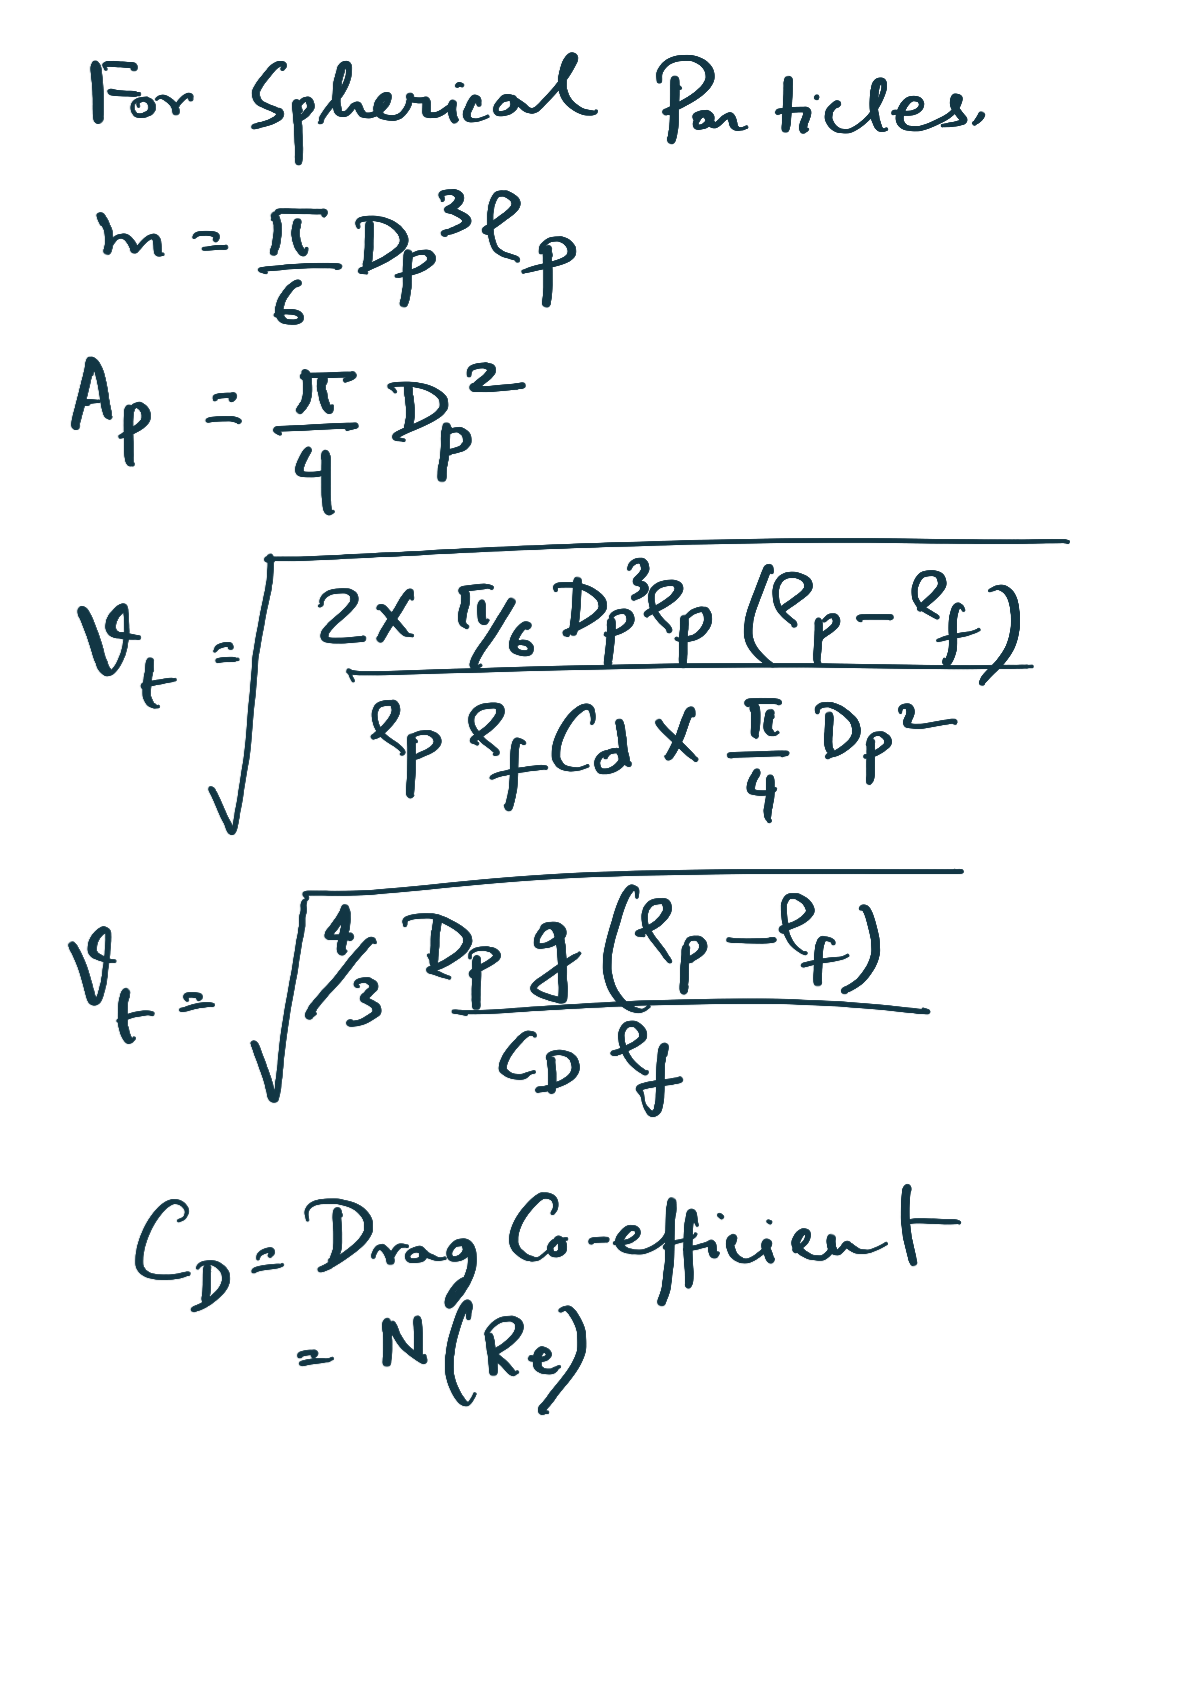 For Spherical Particles.
m = π/6 Dp³ ρp
Ap = π/4 Dp²
vt = √(2 × π/6 Dp³ ρp (ρp − ρf) / (ρp ρf Cd × π/4 Dp²))
vt = √(4/3 Dp g (ρp − ρf) / (CD ρf))
CD = Drag Co-efficient
= N(Re)